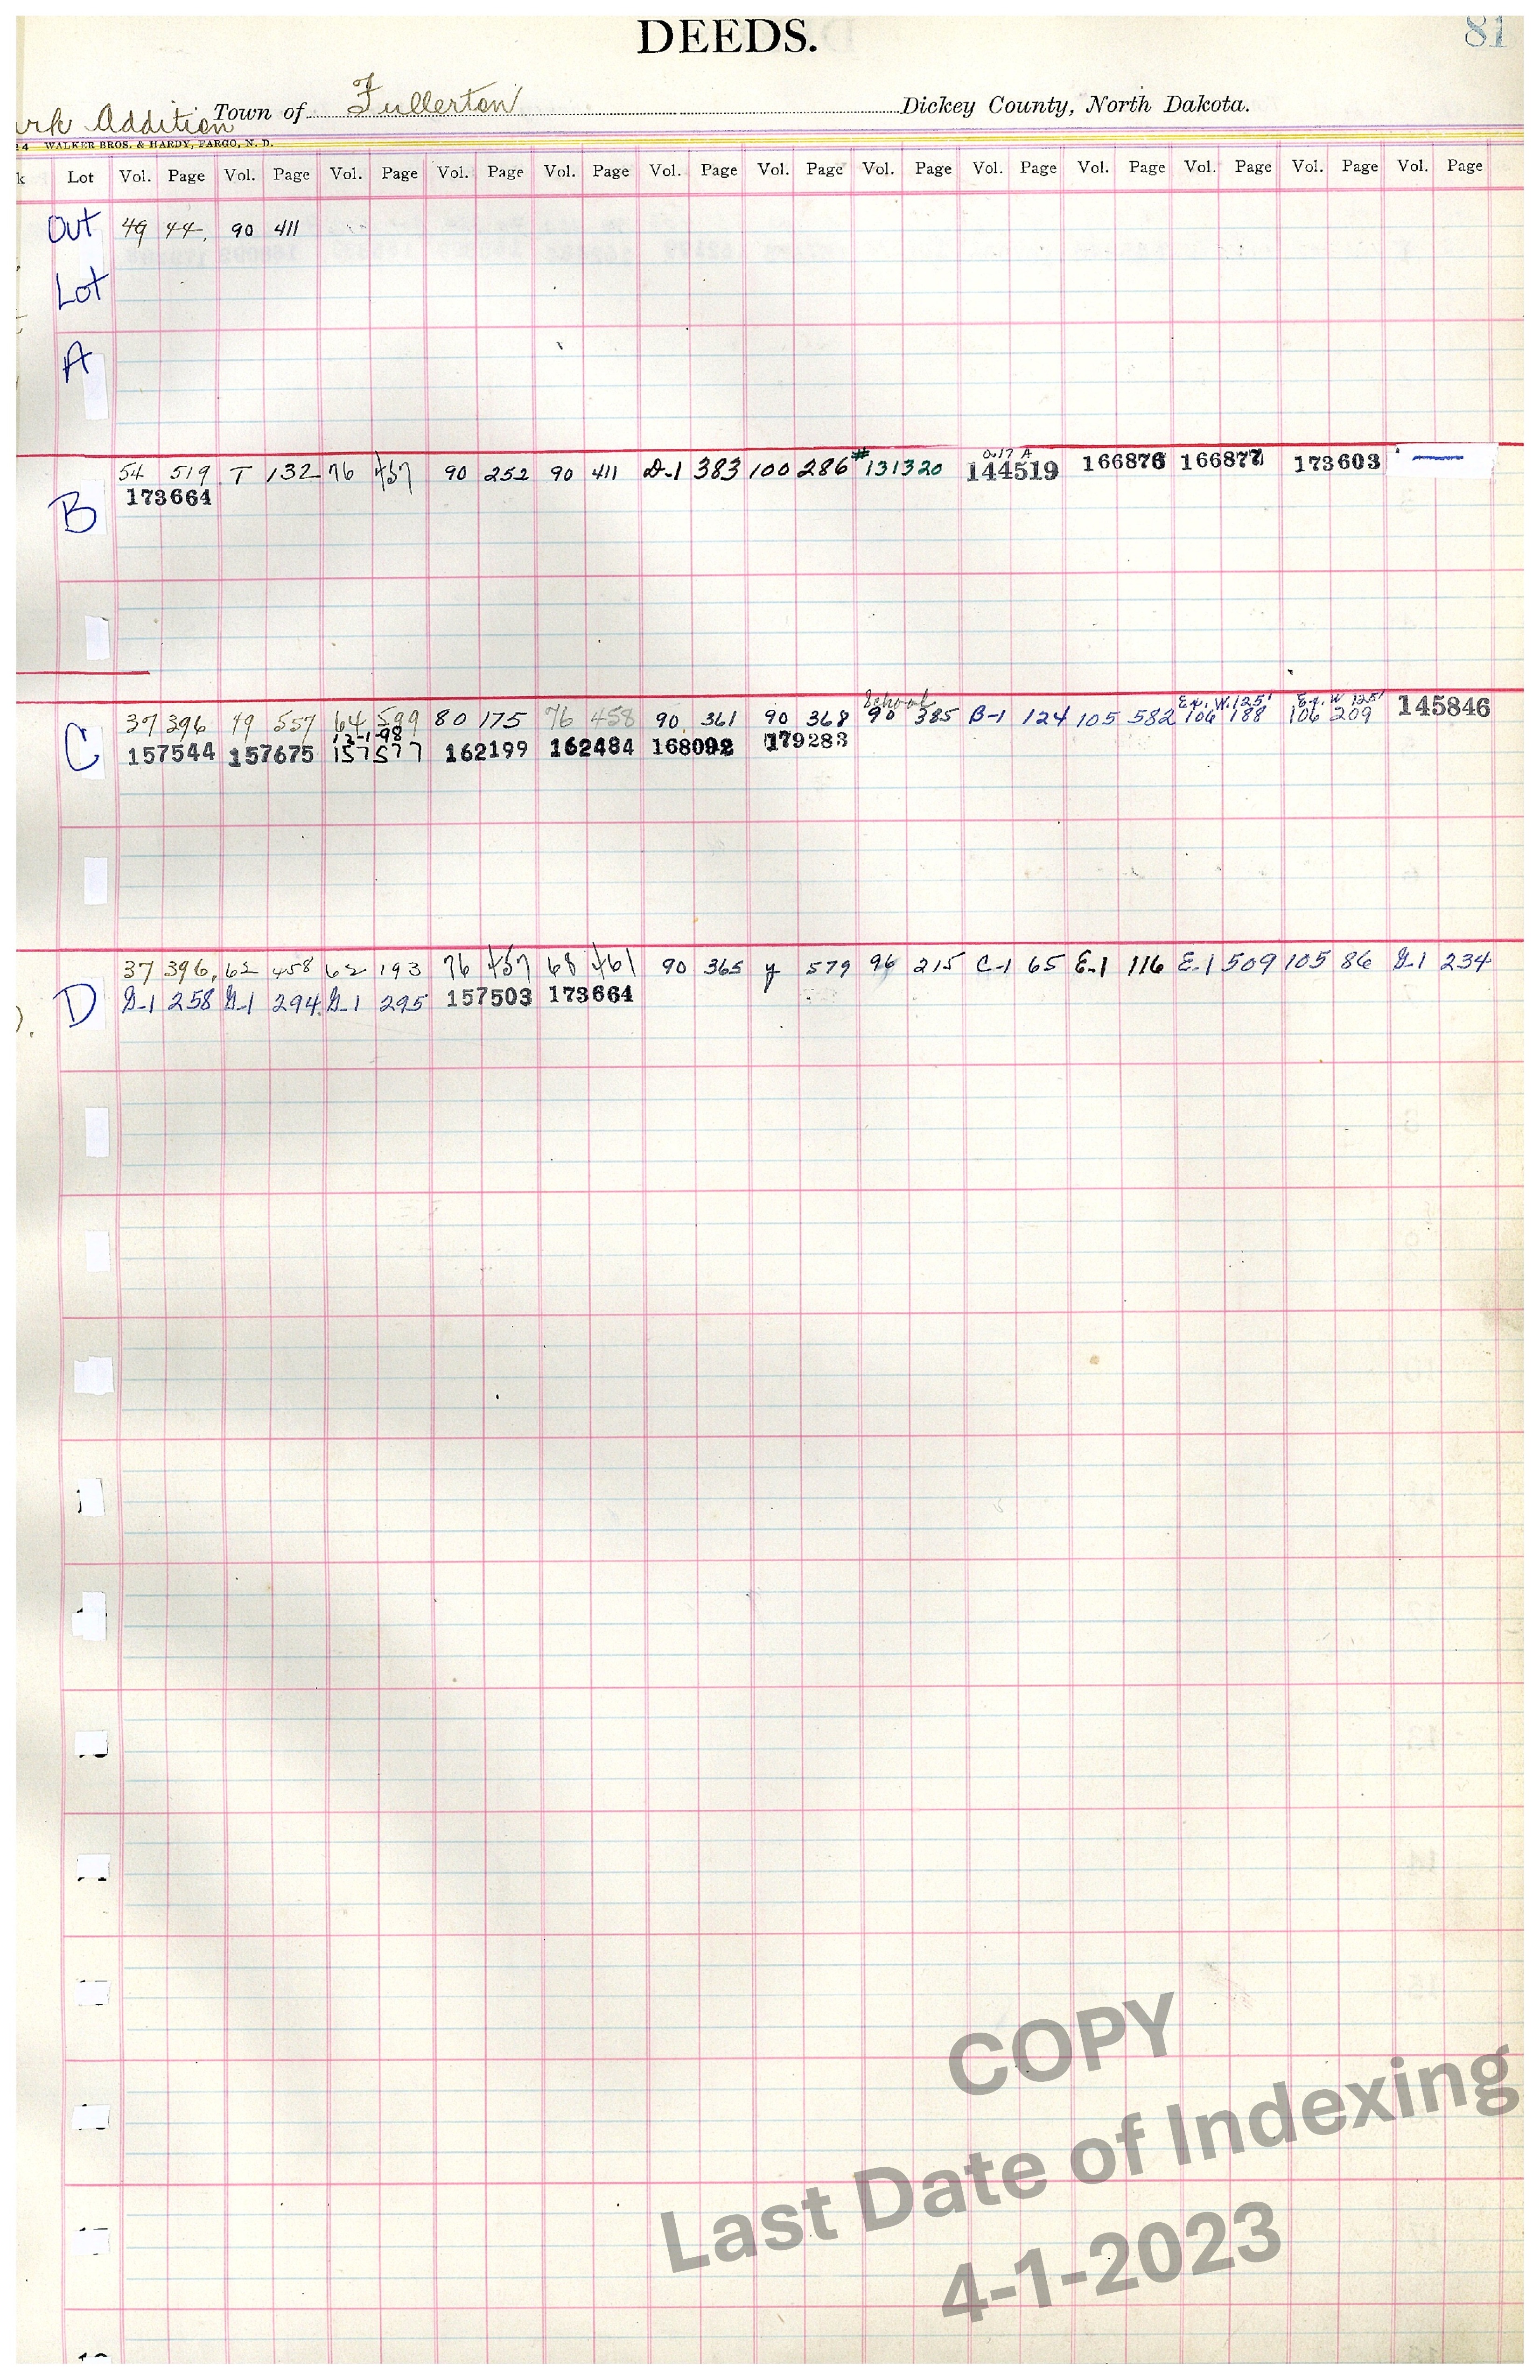 DEEDS.
81
Addition Town of Fullerton Dickey County, North Dakota.
WALKER BROS. & HARDY, FARGO, N. D.
k Lot Vol. Page Vol. Page Vol. Page Vol. Page Vol. Page Vol. Page Vol. Page Vol. Page Vol. Page Vol. Page Vol. Page Vol. Page Vol. Page
Out 49 44 90 411
Lot
A
0.17 A
54 519 T 132 76 457 90 252 90 411 D-1 383 100 286 #131320 144519 166876 166877 173603 —
B 173664
School Ex. W. 125' Ex. W 125'
37 396 49 557 64 599 80 175 76 458 90 361 90 368 90 385 B-1 124 105 582 106 188 106 209 145846
12-1-98
C 157544 157675 157577 162199 162484 168092 179283
37 396 62 458 62 193 76 457 68 461 90 365 y 579 96 215 C-1 65 E-1 116 E-1 509 105 86 G-1 234
D G-1 258 G-1 294 G-1 295 157503 173664
COPY
Last Date of Indexing
4-1-2023